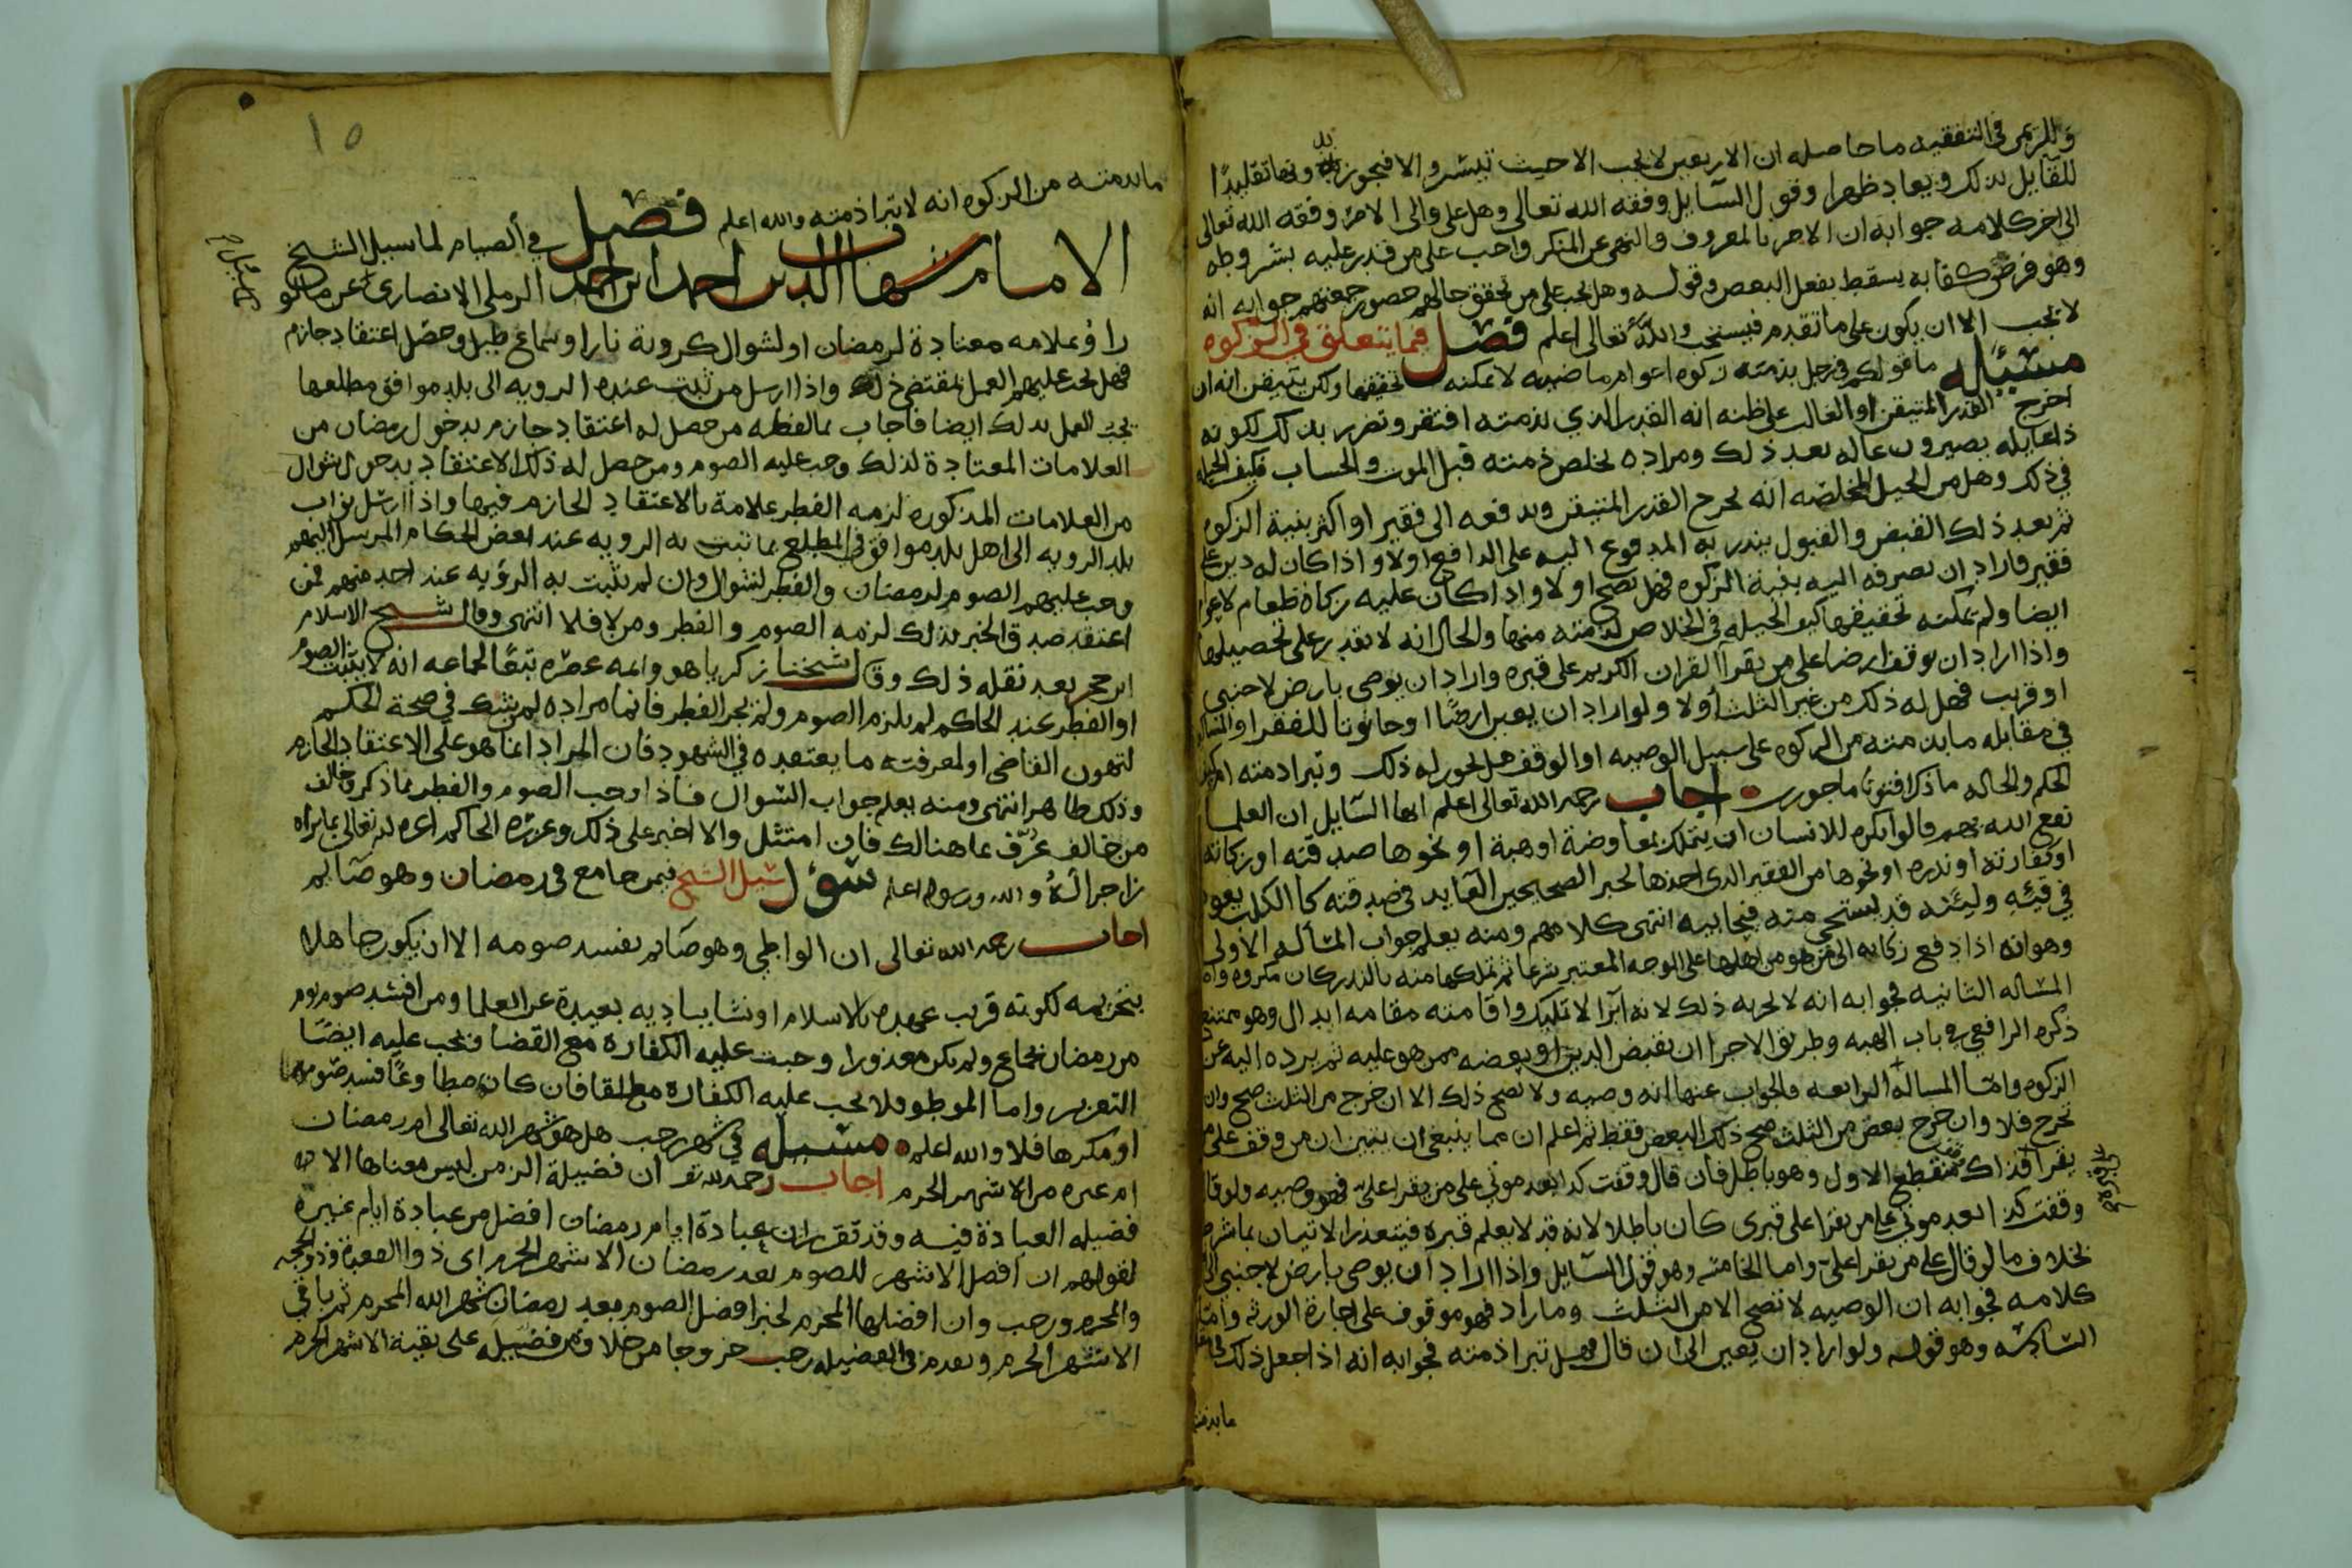 وللريمي في التفقيه ما حاصله ان الاربعين لا يجب الا حيث تيسر والا فيجوز بدونها تقليدًا
للقايل بذلك ويعاد ظهرا وقول السايل وفقه الله تعالى وهل على والى الامر وفقه الله تعالى
الى اخر كلامه جوابه ان الامر بالمعروف والنهى عن المنكر واجب على من قدر عليه بشروطه
وهو فرض كفايه يسقط بفعل البعض وقوله وهل يجب على من تحقق حالهم حضور جمعتهم جوابه انه
لا يجب الا ان يكون على ما تقدم فيستحب والله تعالى اعلم فصل فيما يتعلق في الزكوه
مسئله ما قولكم في رجل بذمته زكوه اعوام ماضيه لا يمكنه تحقيقها ولكن يتيقن انه ان
اخرج القدر المتيقن او الغالب على ظنه انه القدر الذي بذمته افتقر وتضرر بذلك لكونه
ذا عايله يصيرون عاله بعد ذلك ومراده يخلص ذمته قبل الموت والحساب فكيف الحيله
في ذلك وهل من الحيل المخلصه انه يخرج القدر المتيقن ويدفعه الى فقير او اكثر بنية الزكوه
ثم بعد ذلك القبض والقبول ينذر به المدفوع اليه على الدافع اولا واذا كان له دين على
فقير فاراد ان يصرفه اليه بنية الزكوه فهل تصح اولا واذا كان عليه زكاة طعام لاعوام
ايضا ولم يمكنه تحقيقها كيف الحيله في الخلاص لذمته منها والحال انه لا يقدر على تحصيلها
واذا اراد ان يوقف ارضا على من يقرآ القران الكريم على قبره واراد ان يوصى بارض لاجنبي
او قريب فهل له ذلك من غير الثلث أولا ولو اراد ان يعين ارضًا او حانوتا للفقرا والمساكين
في مقابله ما بذمته من الزكوه على سبيل الوصيه او الوقف هل يجوز له ذلك وتبرا ذمته ام كيف
الحكم والحاله ما ذكر افتونا ماجورين اجاب رحمه الله تعالى اعلم ايها السايل ان العلما
نفع الله بهم قالوا يكره للانسان ان يتملك بمعاوضة او هبة او نحوها صدقته او زكاته
او كفارته او نذره او نحوها من الفقير الذى اخذها لخبر الصحيحين العايد في صدقته كالكلب يعود
في قيئه ولانه قد يستحي منه فيحابيه انتهى كلامهم ومنه يعلم جواب المسألة الاولى
وهو انه اذا دفع زكاته الى من هو من اهلها على الوجه المعتبر شرعا ثم تملكها منه بالنذر كان مكروه واما
المساله الثانيه فجوابه انه لا يجزيه ذلك لانه ابرآ لا تمليك واقامته مقامه ابدال وهو ممتنع
ذكره الرافعي في باب الهبه وطريق الاجرا ان يقبض الدين او بعضه ممن هو عليه ثم يرده اليه عن
الزكوه واما المسالة الرابعه فالجواب عنها انه وصيه ولا تصح ذلك الا ان خرج من الثلث صح وان
يخرج فلا وان خرج بعض من الثلث صح ذلك البعض فقط ثم اعلم ان مما ينبغي ان يتبين ان من وقف على من
يقرأ فذاك منقطع الاول وهو باطل فان قال وقفت كذا بعد موتي على من يقرا على فهو وصيه ولو قال
وقفت كذا بعد موتي على من يقرا على قبرى كان باطلا لانه قد لا يعلم قبره فيتعذر الاتيان بما شرط
بخلاف ما لو قال على من يقرا علي واما الخامسه وهو قول السايل واذا اراد ان يوصى بارض لاجنبي الى
كلامه فجوابه ان الوصيه لا تصح الا من الثلث وما زاد فهو موقوف على اجازة الورثه واما
السادسه وهو قوله ولو اراد ان يعين الى ان قال فهل تبرا ذمته فجوابه انه اذا جعل ذلك
ما بذمته
١٥
ما بذمته من الزكوه انه لا تبرا ذمته والله اعلم فصل في الصيام لما سيل الشيخ
الامام شهاب الدين احمد ابن احمد الرملي الانصاري عن ما لو
راؤ علامه معتادة لرمضان او لشوال كروية نار او سماع طبل وحصل اعتقاد جازم
فهل يجب عليهم العمل بمقتضى ذلك واذا ارسل من ثبت عنده الرويه الى بلد موافق مطلعها
يجب العمل بذلك ايضا فاجاب بما لفظه من حصل له اعتقاد جازم بدخول رمضان من
العلامات المعتادة لذلك وجب عليه الصوم ومن حصل له ذلك الاعتقاد بدخول شوال
من العلامات المذكوره لزمه الفطر علامة بالاعتقاد الجازم فيها واذا ارسل نواب
بلد الرويه الى اهل بلد موافق في المطلع بما تبت به الرويه عند بعض الحكام المرسل اليهم
وجب عليهم الصوم لرمضان والفطر لشوال وان لم يثبت به الرؤيه عند احد منهم فمن
اعتقد صدق الخبر بذلك لزمه الصوم والفطر ومن لا فلا انتهى وقال شيخ الاسلام
ابن حجر بعد نقله ذلك وقال شيخنا زكريا هو وايمه عصره تبعًا لجماعه انه لا يثبت الصوم
او الفطر عند الحاكم لم يلزم الصوم ولم يجز الفطر فانما مراده لمن شك في صحة الحكم
لتهون القاضى او لمعرفته ما يعتقده في الشهود فان المراد انما هو على الاعتقاد الجازم
وذلك ظاهر انتهى ومنه يعلم جواب السوال فاذا اوجب الصوم والفطر بما ذكر وخالف
من خالف عُرّف بما هنالك فان امتثل والا اخبر على ذلك وعزره الحاكم اعزه الله تعالى بما يراه
زاجرا لهُ والله ورسوله اعلم سؤل سيل الشيخ فيمن جامع في رمضان وهو صآيم
اجاب رحمه الله تعالى ان الواطي وهو صآيم يفسد صومه الا ان يكون جاهلا
بتحريمه لكونه قريب عهده بالاسلام او نشا بباديه بعيدة عن العلما ومن افسد صوم يوم
من رمضان بجماع ولم يكن معذورا وجبت عليه الكفارة مع القضا فيجب عليه ايضًا
التعزير واما الموطو فلا يجب عليه الكفاره مطلقا فان كان مطاوعًا فسد صومه
او مكرها فلا والله اعلم مسيله في شهر رجب هل هو شهر الله تعالى ام رمضان
ام غيره من الاشهر الحرم اجاب رحمه الله تع ان فضيلة الزمن ليس معناها الا
فضيله العبادة فيه وقد تقرر ان عبادة ايام رمضان افضل من عبادة ايام غيره
لقولهم ان افضل الاشهر للصوم بعد رمضان الاشهر الحرم اى ذوا القعدة وذو الحجه
والمحرم ورجب وان افضلها المحرم لخبر افضل الصوم بعد رمضان شهر الله المحرم ثم باقي
الاشهر الحرم ويقدم في الفضيله رجب خروجا من خلاف من فضيله على بقية الاشهر الحرم